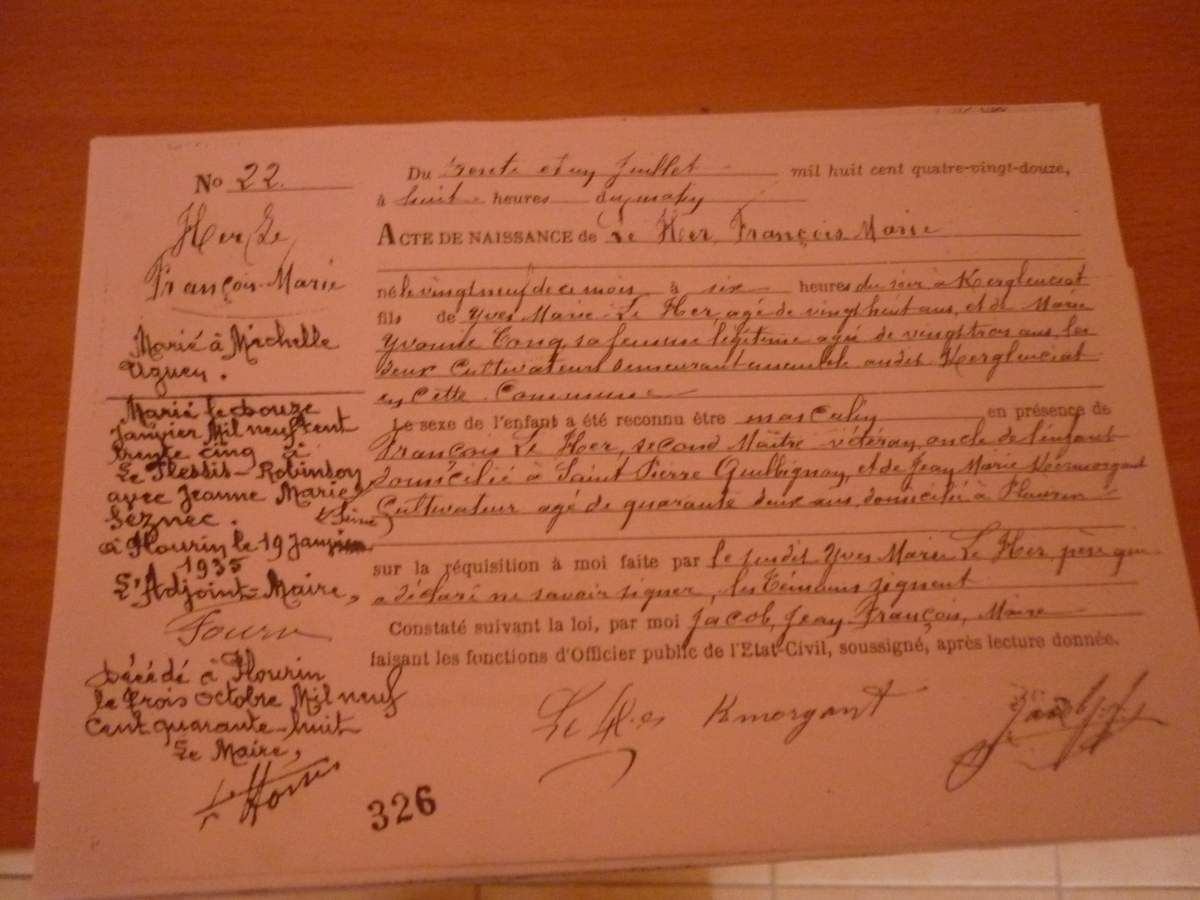 No 22.
Her Le
François-Marie
Marié à Michelle
Uguen.
Marié le douze
janvier Mil neuf cent
trente cinq à
Le Plessis-Robinson
(Seine)
avec Jeanne Marie
Seznec.
à Plourin le 19 Janvier
1935
L'Adjoint-Maire,
Décédé à Plourin
le trois octobre Mil neuf
cent quarante-huit
Le Maire,
Du trente et un Juillet mil huit cent quatre-vingt-douze,
à huit heures du matin
ACTE DE NAISSANCE de Le Her, François Marie
né le vingt neuf de ce mois à six heures du soir à Kerglenciat
fils de Yves Marie Le Her, agé de vingt huit ans, et de Marie
Yvonne sa femme légitime agée de vingt trois ans, les
deux Cultivateurs demeurant ensemble audit Kerglenciat
en cette Commune
Le sexe de l'enfant a été reconnu être masculin en présence de
François Le Her, second Maître vétéran, oncle de l'enfant
domicilié à Saint Pierre Quilbignon, et de Jean Marie Kermorgant
Cultivateur agé de quarante deux ans, domicilié à Plourin
sur la réquisition à moi faite par le susdit Yves Marie Le Her, père qui
a déclaré ne savoir signer, les témoins signent
Constaté suivant la loi, par moi Jacob, Jean François, Maire
faisant les fonctions d'Officier public de l'Etat-Civil, soussigné, après lecture donnée.
Le Her Kmorgant
326